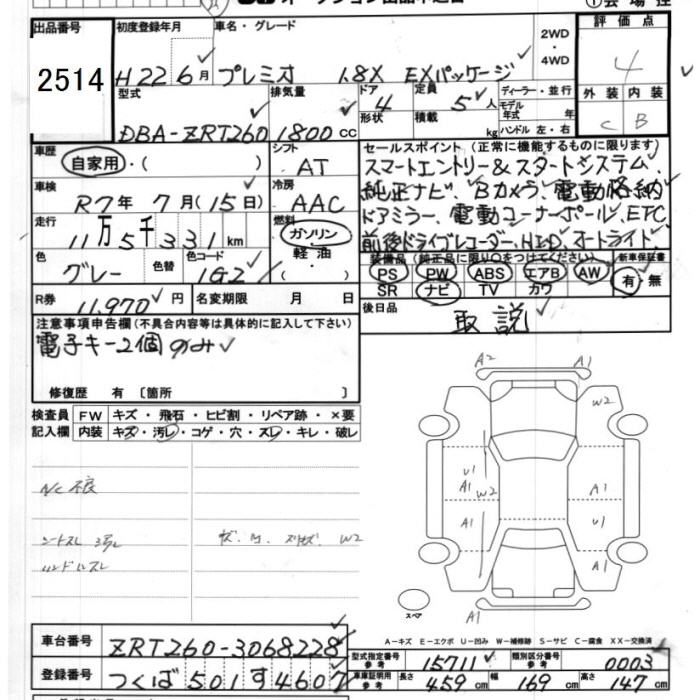 出品番号 初度登録年月 車名・グレード 2WD・4WD 評価点
2514 H22 6月 プレミオ 1.8X EXパッケージ 4
型式 排気量 ドア 4 定員 5人 ディーラー・並行 外装 内装
DBA-ZRT260 1800cc 形状 積載 kg モデル年式 年 C B
ハンドル 左・右
車歴 自家用・( ) シフト AT セールスポイント(正常に機能するものに限ります)
スマートエントリー&スタートシステム、
車検 R7年 7月(15日) 冷房 AAC 純正ナビ、Bカメラ、電動格納
ドアミラー、電動コーナーポール、ETC、
走行 11万5千331km 燃料 ガソリン・軽油・( ) 前後ドライブレコーダー、HID、オートライト、
色 グレー 色替 色コード 1G2 装備品(純正品に限り○をつけてください) 新車保証書
PS PW ABS エアB AW 有・無
SR ナビ TV カワ
R券 11,970円 名変期限 月 日 後日品
取説
注意事項申告欄(不具合内容等は具体的に記入して下さい)
電子キー2個のみ
修復歴 有 〔箇所 〕
検査員 FW キズ・飛石・ヒビ割・リペア跡・×要
記入欄 内装 キズ・汚レ・コゲ・穴・スレ・キレ・破レ
A2 A1
W2
U1
A1 W2 A1
A1 U1
A1
A1
N/C不良
シートスレ
ハンドルスレ
W2
スペア
A-キズ E-エクボ U-凹み W-補修跡 S-サビ C-腐食 XX-交換済
車台番号 ZRT260-3068228
登録番号 つくば501す4607
型式指定番号 参考 15711 類別区分番号 参考 0003
車庫証明用 参考 長さ 459cm 幅 169cm 高さ 147cm